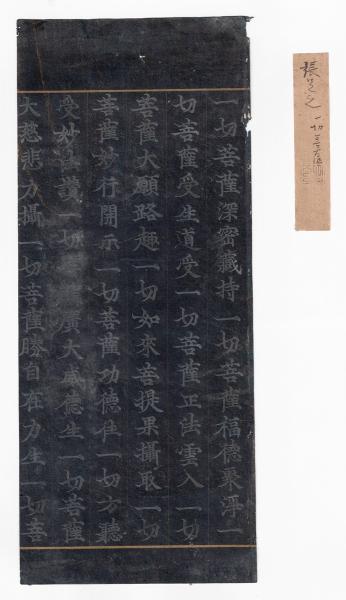 張之 一切
一切菩薩深密藏持一切菩薩福德乘淨一
切菩薩受生道受一切菩薩正法雲入一切
菩薩大願路趣一切如來菩提果攝取一切
菩薩妙行開示一切菩薩功德住一切方聽
受妙法讚一切菩薩廣大威德生一切菩薩
大慈悲力攝一切菩薩勝自在力生一切菩